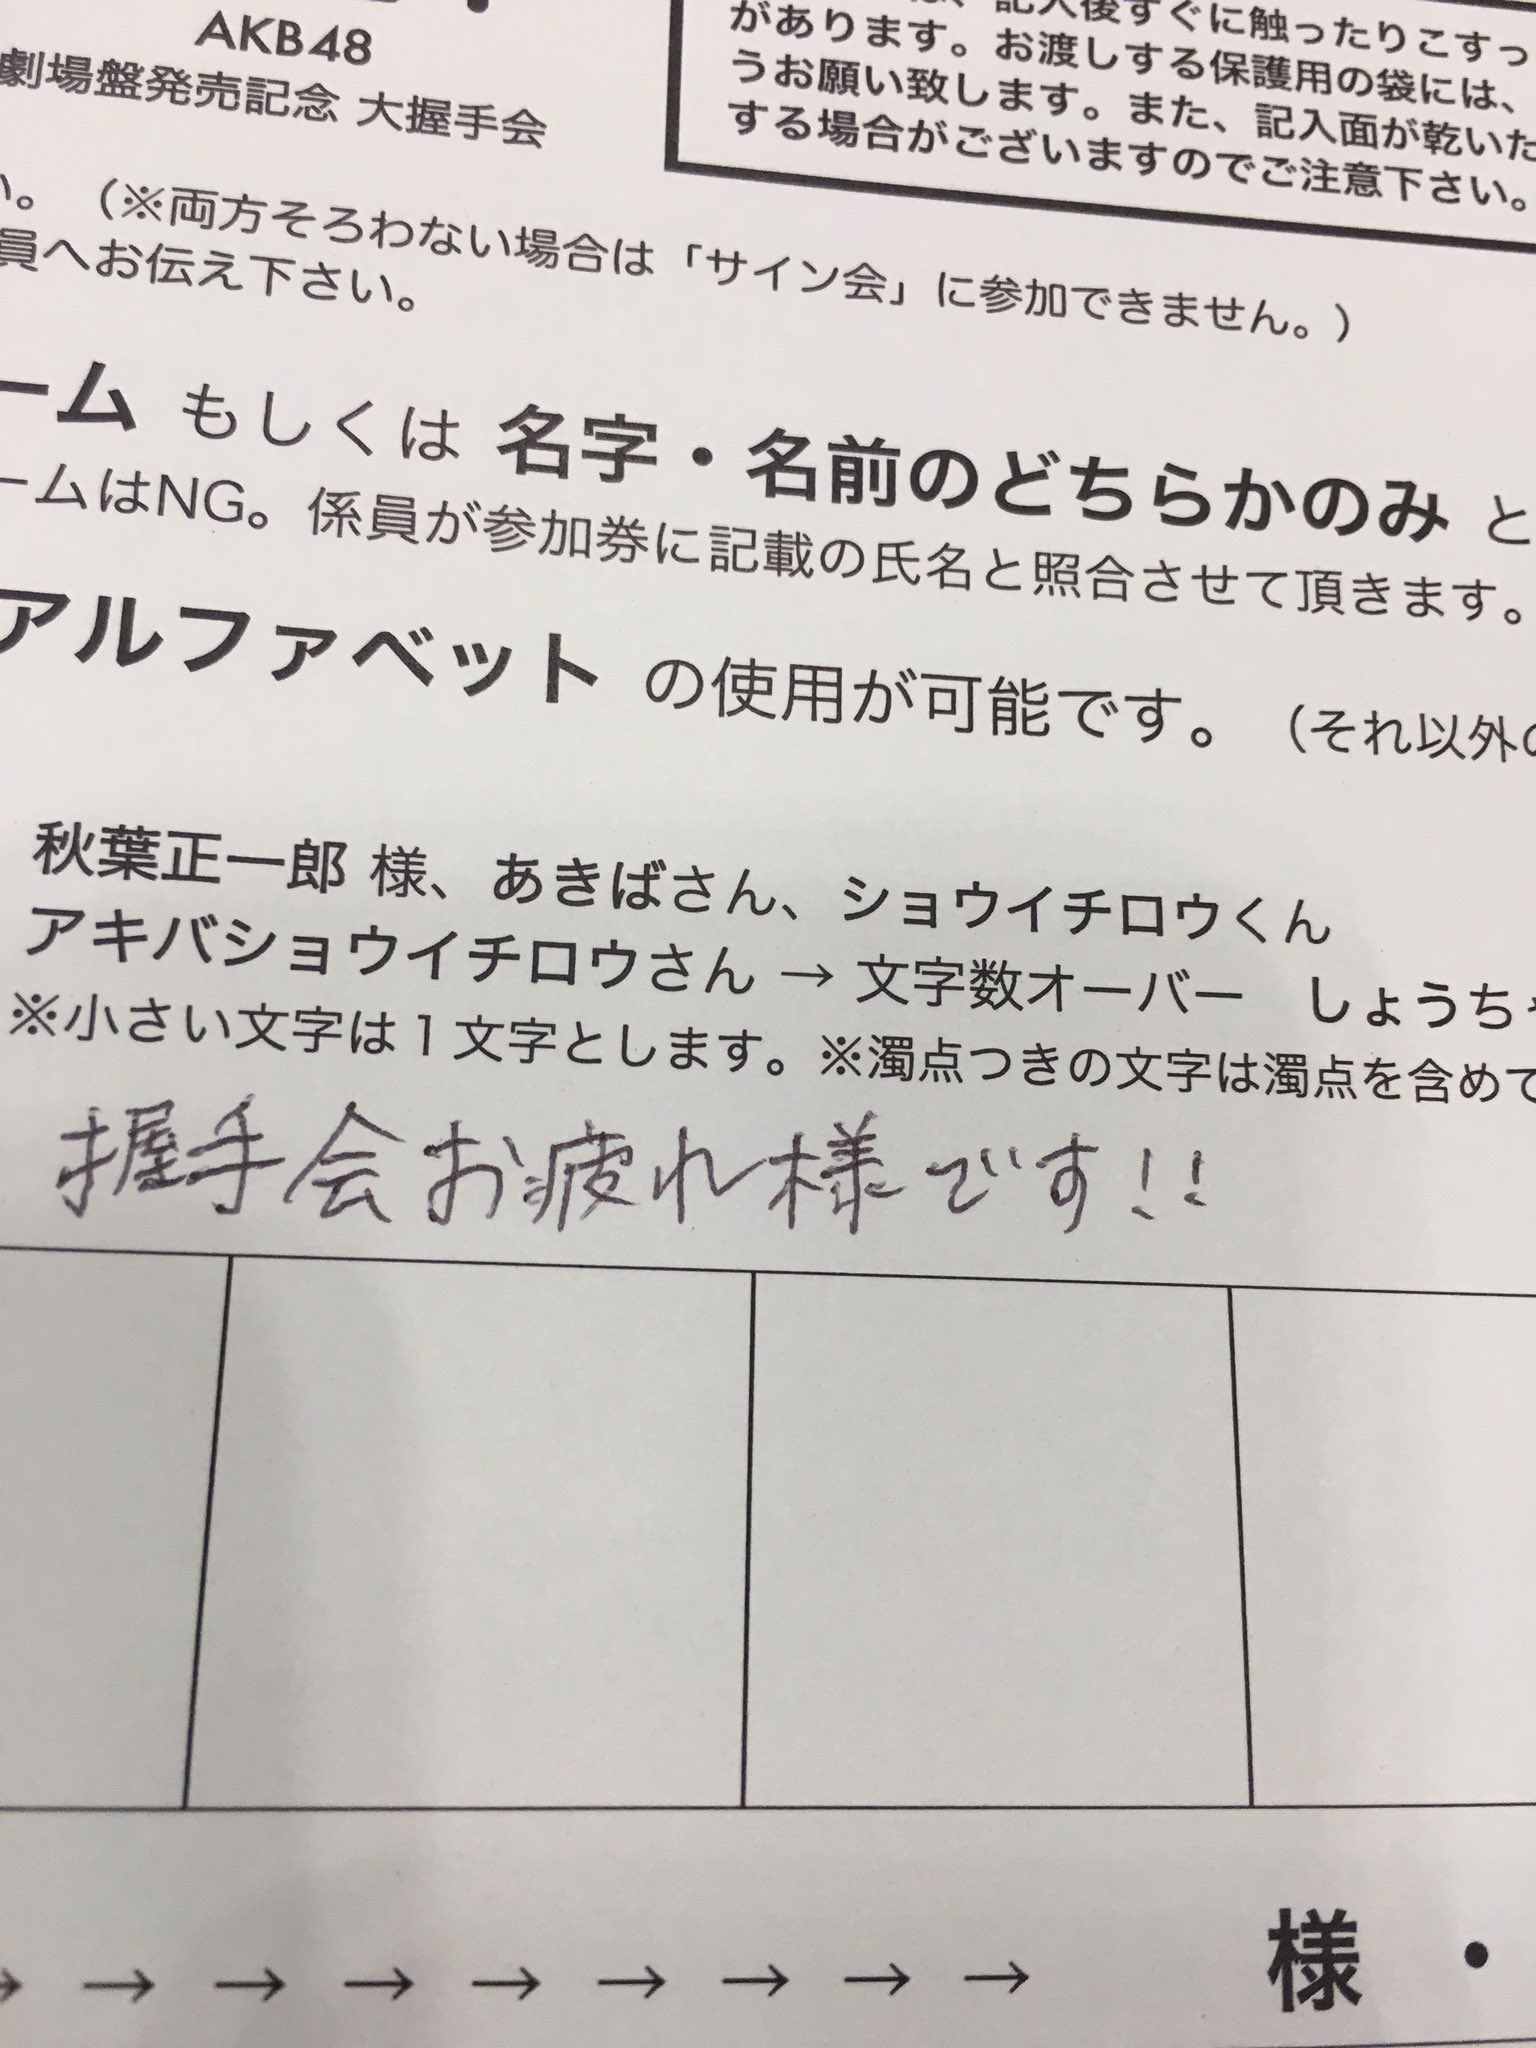 AKB48
劇場盤発売記念 大握手会
記入後すぐに触ったりこすっ
があります。お渡しする保護用の袋には、
うお願い致します。また、記入面が乾いた
する場合がございますのでご注意下さい。
い。（※両方そろわない場合は「サイン会」に参加できません。）
員へお伝え下さい。
ーム もしくは 名字・名前のどちらかのみ と
ームはNG。係員が参加券に記載の氏名と照合させて頂きます。
アルファベット の使用が可能です。（それ以外の
秋葉正一郎 様、あきばさん、ショウイチロウくん
アキバショウイチロウさん → 文字数オーバー しょうちゃ
※小さい文字は1文字とします。※濁点つきの文字は濁点を含めて
握手会お疲れ様です!!
→ → → → → → → → → 様 ・